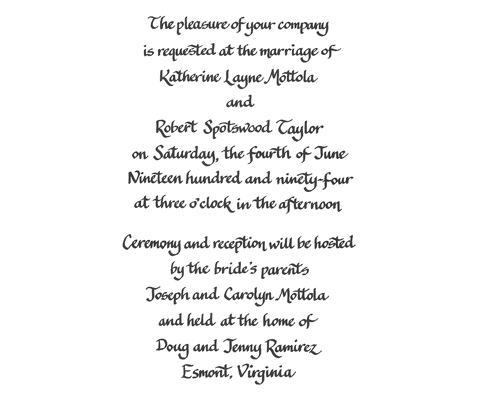 The pleasure of your company
is requested at the marriage of
Katherine Layne Mottola
and
Robert Spotswood Taylor
on Saturday, the fourth of June
Nineteen hundred and ninety-four
at three o'clock in the afternoon
Ceremony and reception will be hosted
by the bride's parents
Joseph and Carolyn Mottola
and held at the home of
Doug and Jenny Ramirez
Esmont, Virginia